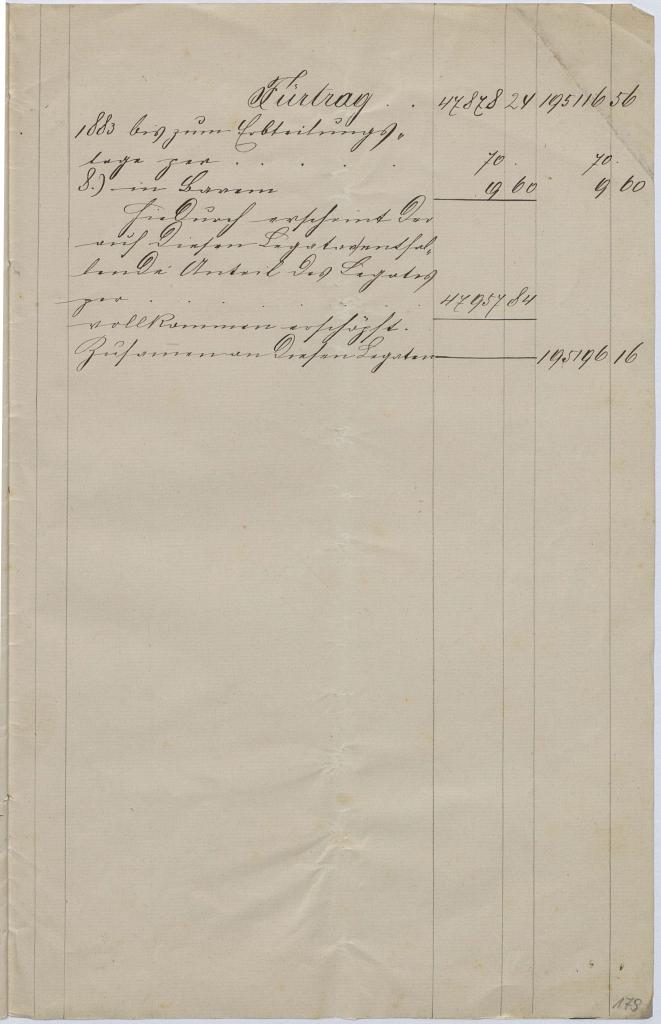 Fürtrag . . 47878 24 195116 56
1883 bis zum Erbteilungs„
tage per . . . . . 70 . 70 .
8.) in Barem 9 60 9 60
Hiedurch erscheint der
auf diesen Legatar entfal„
lende Anteil des Legates
per . . . . . . 47957 84
vollkommen erschöpft.
Zusamen an diesen Legaten 195196 16
179